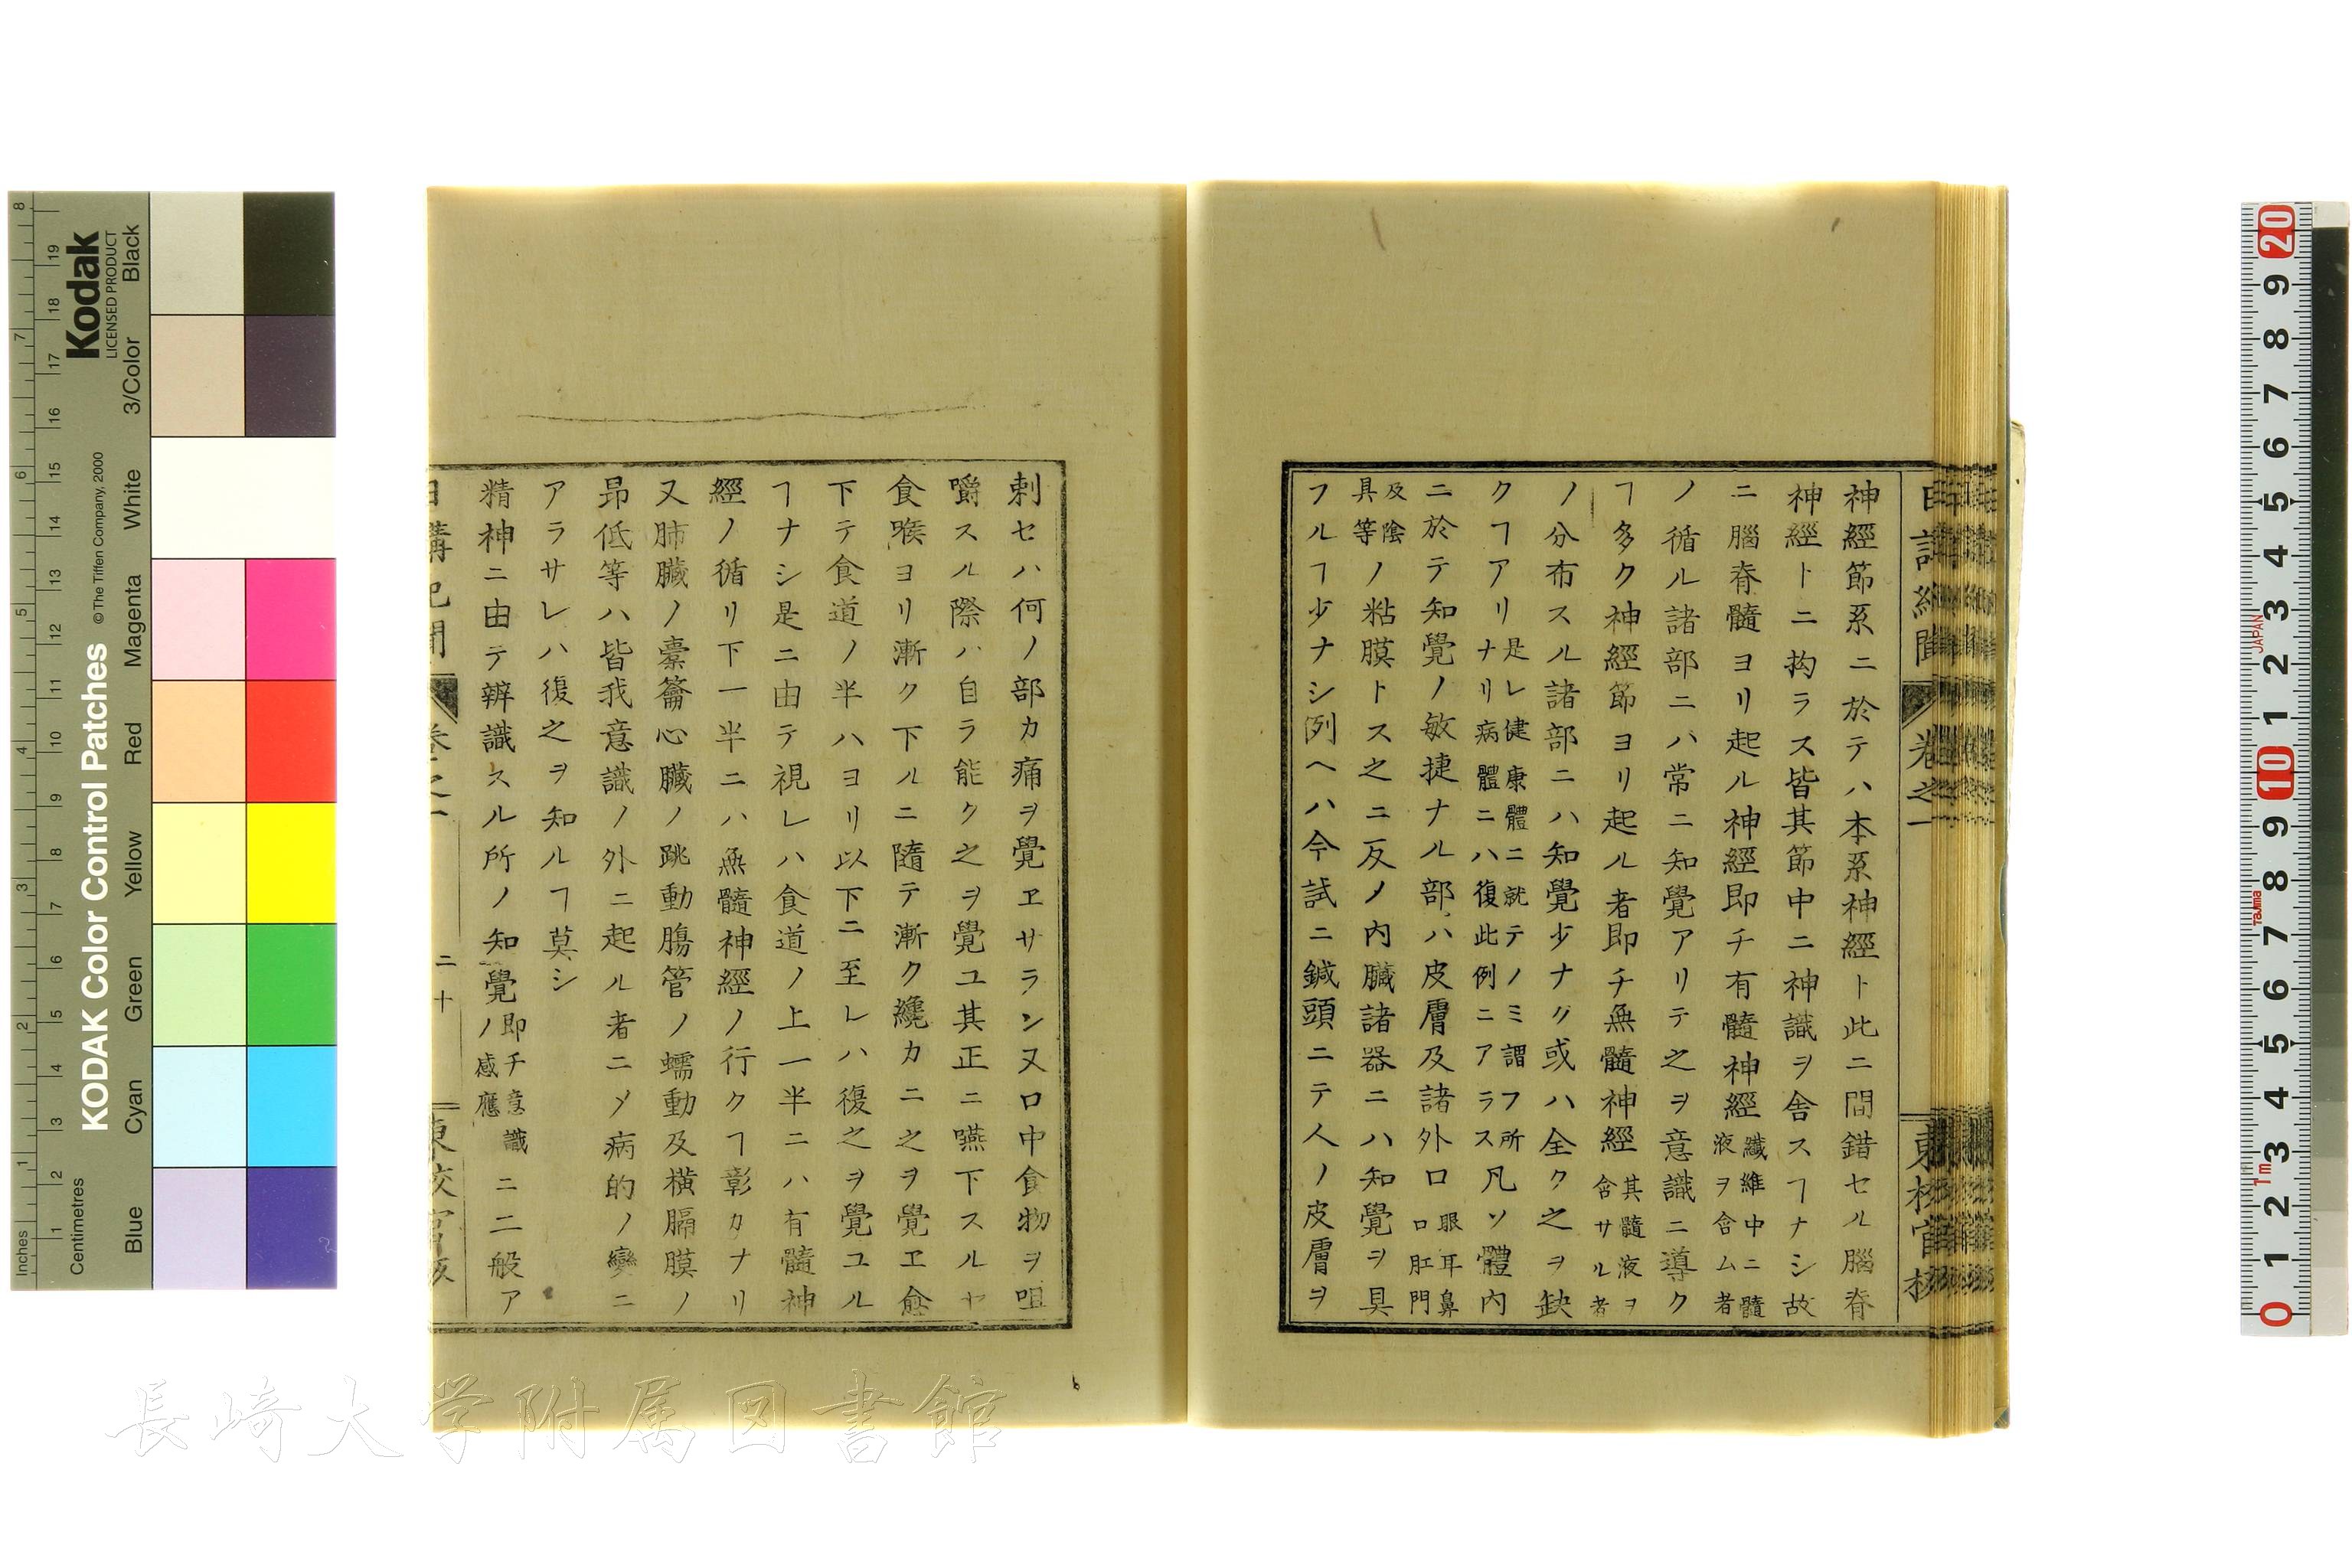 神經節系ニ於テハ本系神經ト此ニ間錯セル腦脊
神經トニ拘ラス皆其節中ニ神識ヲ舍スヿナシ故
ニ腦脊髓ヨリ起ル神經即チ有髓神經纖維中ニ髓液ヲ含ム者
ノ循ル諸部ニハ常ニ知覺アリテ之ヲ意識ニ導ク
ヿ多ク神經節ヨリ起ル者即チ無髓神經其髓液ヲ含サル者
ノ分布スル諸部ニハ知覺少ナク或ハ全ク之ヲ缺
クヿアリ是レ健康體ニ就テノミ謂フ所ナリ病體ニハ復此例ニアラス凡ソ體内
ニ於テ知覺ノ敏捷ナル部ハ皮膚及諸外口眼耳鼻口肛門
及陰具等ノ粘膜トス之ニ反メ内臟諸器ニハ知覺ヲ具
フルヿ少ナシ例ヘハ今試ニ鍼頭ニテ人ノ皮膚ヲ
卷之一
刺セハ何ノ部カ痛ヲ覺ヱサラン又口中食物ヲ咀
嚼スル際ハ自ラ能ク之ヲ覺ユ其正ニ嚥下スルヤ
食喉ヨリ漸ク下ルニ隨テ漸ク纔カニ之ヲ覺ヱ愈
下テ食道ノ半ハヨリ以下ニ至レハ復之ヲ覺ユル
ヿナシ是ニ由テ視レハ食道ノ上一半ニハ有髓神
經ノ循リ下一半ニハ無髓神經ノ行クヿ彰カナリ
又肺臟ノ橐籥心臟ノ跳動腸管ノ蠕動及橫膈膜ノ
昻低等ハ皆我意識ノ外ニ起ル者ニメ病的ノ變ニ
アラサレハ復之ヲ知ルヿ莫シ
精神ニ由テ辨識スル所ノ知覺ノ即チ意識感應ニ二般ア
二十
長崎大学附属図書館
Kodak
LICENSED PRODUCT
KODAK Color Control Patches
© The Tiffen Company, 2000
Inches
Centimetres
Blue
Cyan
Green
Yellow
Red
Magenta
White
3/Color
Black
JAPAN
Tajima